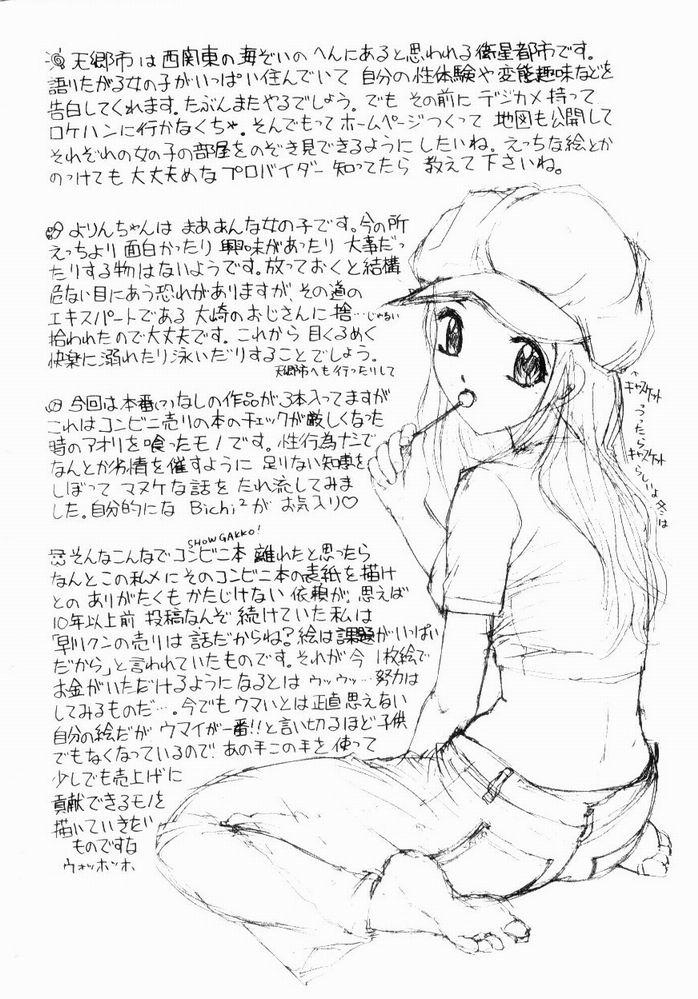 天郷市は西関東の海ぞいのへんにあると思われる衛星都市です。
語りたがる女の子がいっぱい住んでいて 自分の性体験や変態趣味などを
告白してくれます。たぶんまたやるでしょう。でも その前に デジカメ持って
ロケハンに行かなくちゃ。そんでもって ホームページつくって 地図も公開して
それぞれの女の子の部屋をのぞき見できるようにしたいね。えっちな絵とか
のっけても大丈夫めなプロバイダー知ってたら 教えて下さいね。
よりんちゃんは まああんな女の子です。今の所
えっちより面白かったり 興味があったり 大事だっ
たりする物はないようです。放っておくと結構
危ない目にあう恐れがありますが、その道の
エキスパートである 大崎のおじさんに捨…じゃない
拾われたので大丈夫です。これから 目くるめく
快楽に溺れたり泳いだりすることでしょう。
天郷市へも行ったりして
今回は本番(?)なしの作品が3本入ってますが
これはコンビニ売りの本のチェックが厳しくなった
時のアオリを喰ったモノです。性行為なしで
なんとか劣情を催すように 足りない知恵を
しぼって マヌケな話を たれ流してみま
した。自分的には Bichi²が お気入り♡
SHOWGAKKO!
そんなこんなでコンビニ本 離れたと思ったら
なんとこの私メにそのコンビニ本の表紙を描け
との ありがたくもかたじけない 依頼が。思えば
10年以上前 投稿なんぞ 続けていた 私は
「早りクンの売りは 話だからね?絵は課題がいっぱい
だから」と言われていたものです。それが今 1枚絵で
お金がいただけるようになるとは ウッウッ…努力は
してみるものだ…。今でもウマいとは正直思えない
自分の絵だが ウマイが一番!!と言い切るほど子供
でもなくなっているので あの手この手を使って
少しでも売上げに
貢献できるモノを
描いていきたい
ものですな
ウォッホッホ
キャスケット
つったら
キャスケット
らしいよ冬は